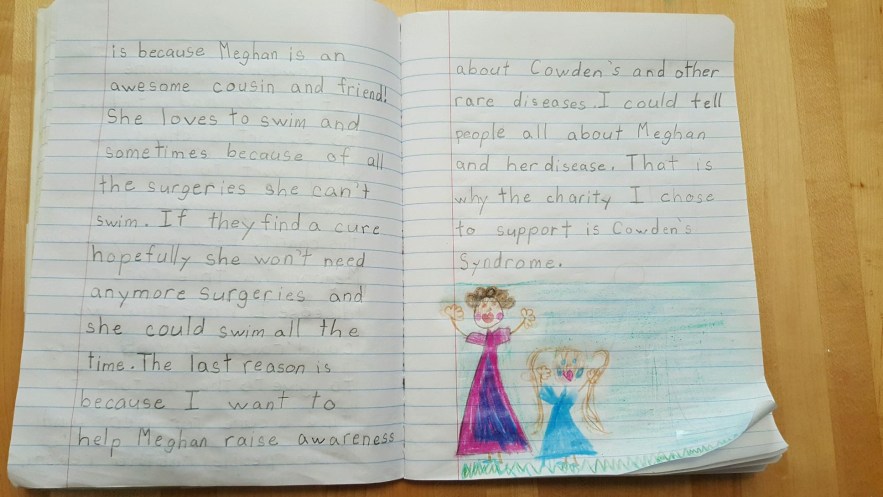 is because Meghan is an
awesome cousin and friend!
She loves to swim and
sometimes because of all
the surgeries she can't
swim. If they find a cure
hopefully she won't need
anymore surgeries and
she could swim all the
time. The last reason is
because I want to
help Meghan raise awareness
about Cowden's and other
rare diseases. I could tell
people all about Meghan
and her disease. That is
why the charity I chose
to support is Cowden's
Syndrome.